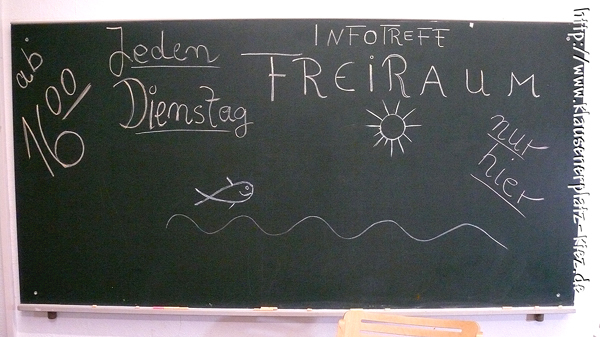 ab
16 00
Jeden
Dienstag
INFOTREFF
FREiRAUM
nur
hier
http://www.klausenerplatz-kiez.de